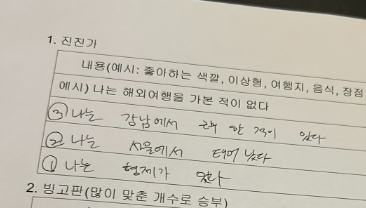 1. 진진가
내용(예시: 좋아하는 색깔, 이상형, 여행지, 음식, 장점
예시) 나는 해외여행을 가본 적이 없다
③ 나는 강남에서 한 적이 있다
② 나는 서울에서 태어났다
① 나는 형제가 있다
2. 빙고판(많이 맞춘 개수로 승부)